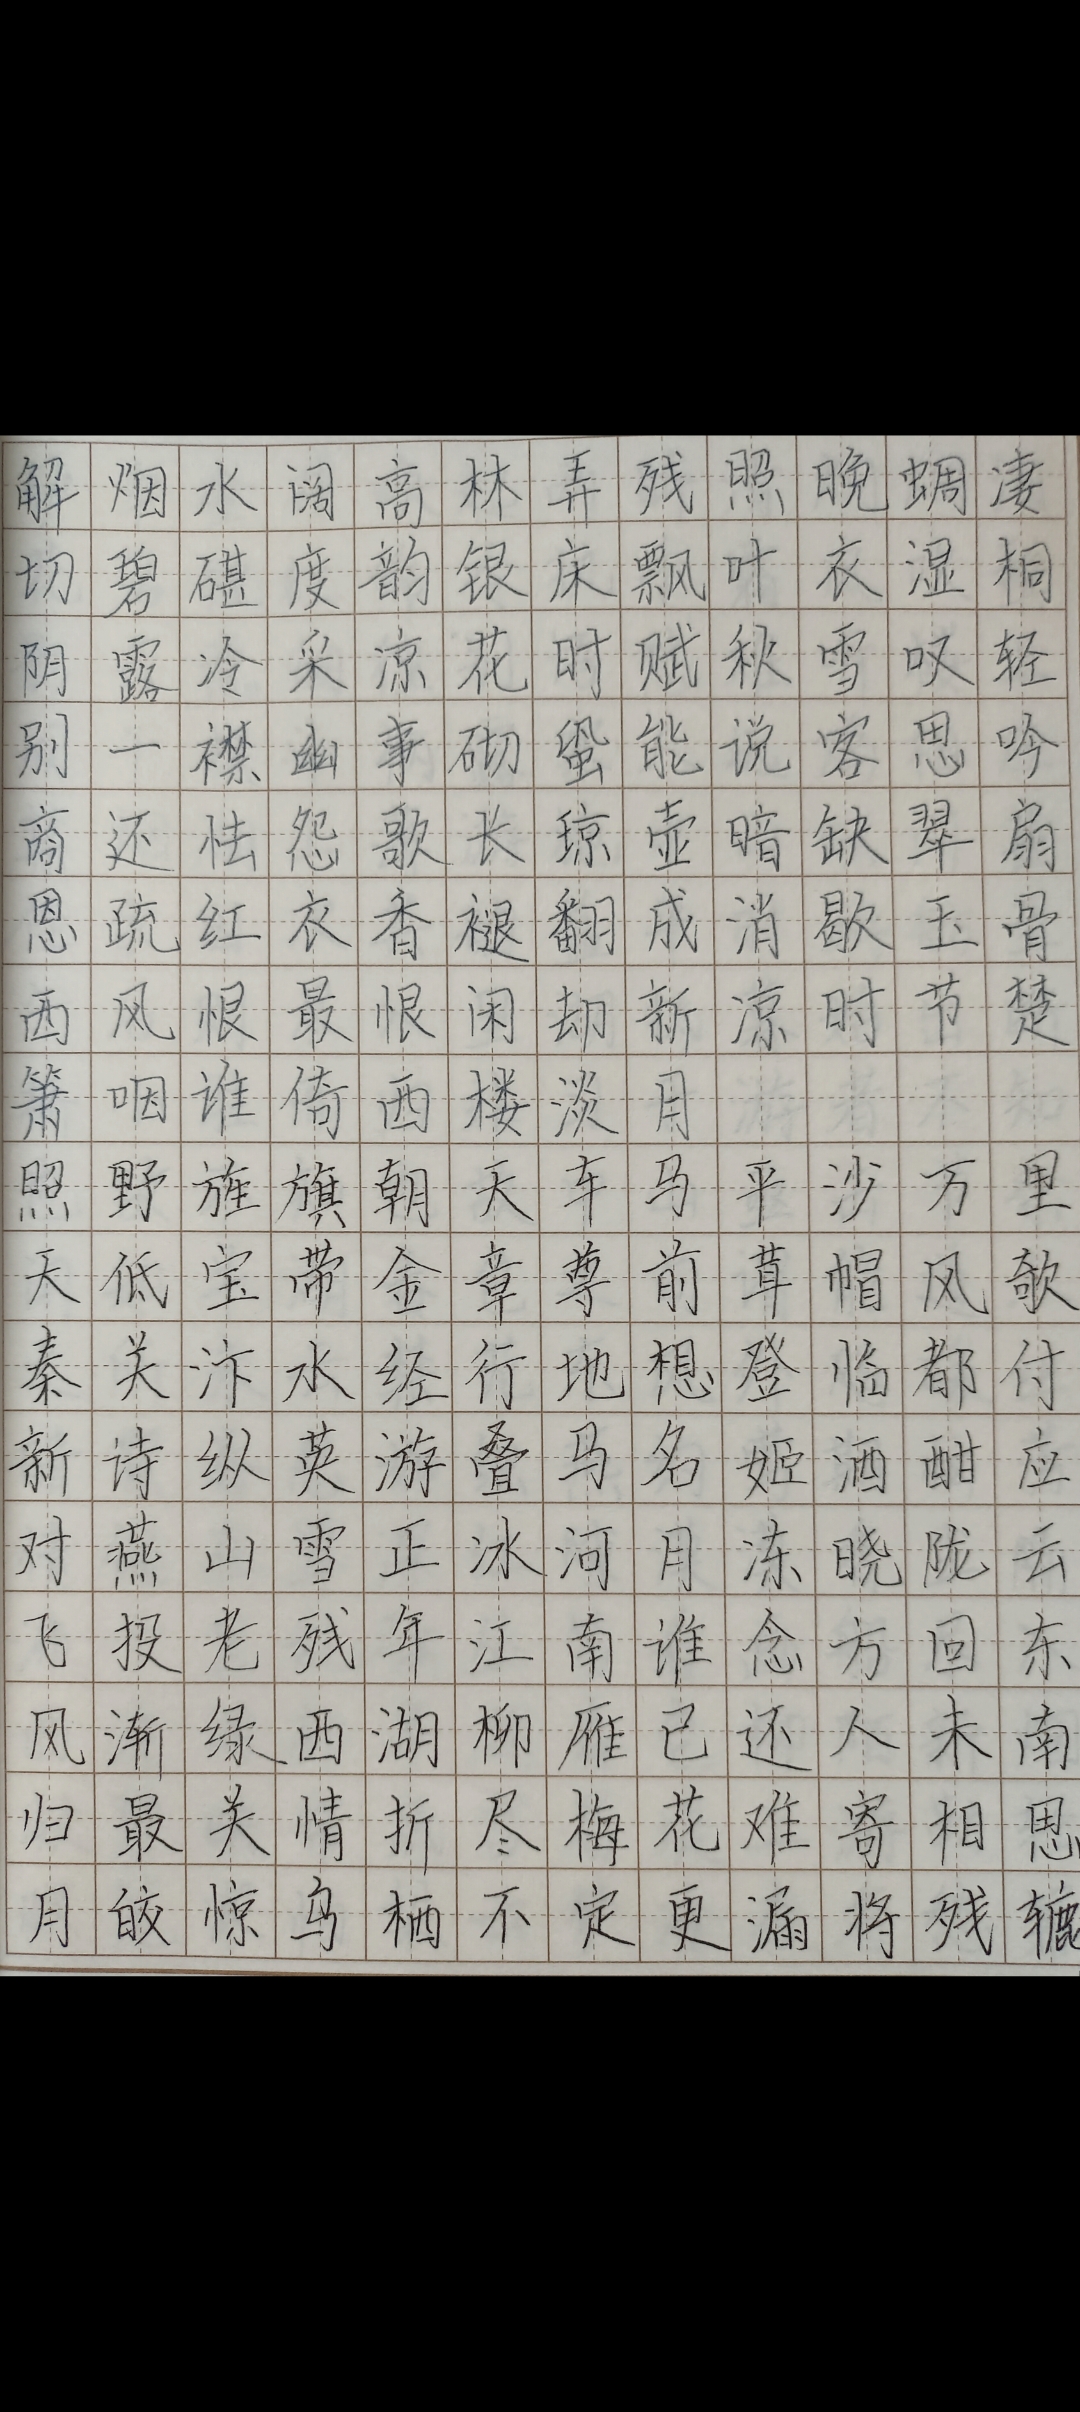 解烟水阔高林弄残照晚蜩凄
切碧碪度韵银床飘叶衣湿桐
阴露冷采凉花时赋秋雪叹轻
别一襟幽事砌蛩能说客思吟
商还怯怨歌长琼壶暗缺翠扇
恩疏红衣香褪翻成消歇玉骨
西风恨最恨闲却新凉时节楚
箫咽谁倚西楼淡月
照野旌旗朝天车马平沙万里
天低宝带金章尊前茸帽风欹
秦关汴水经行地想登临都付
新诗纵英游叠马名姬酒酣应
对燕山雪正冰河月冻晓陇云
飞投老残年江南谁念方回东
风渐绿西湖柳雁已还人未南
归最关情折尽梅花难寄相思
月皎惊乌栖不定更漏将残辘